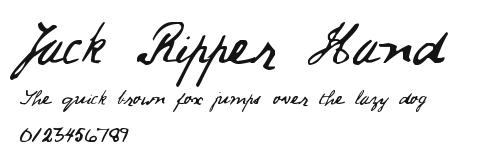 Jack Ripper Hand
The quick brown fox jumps over the lazy dog
0123456789